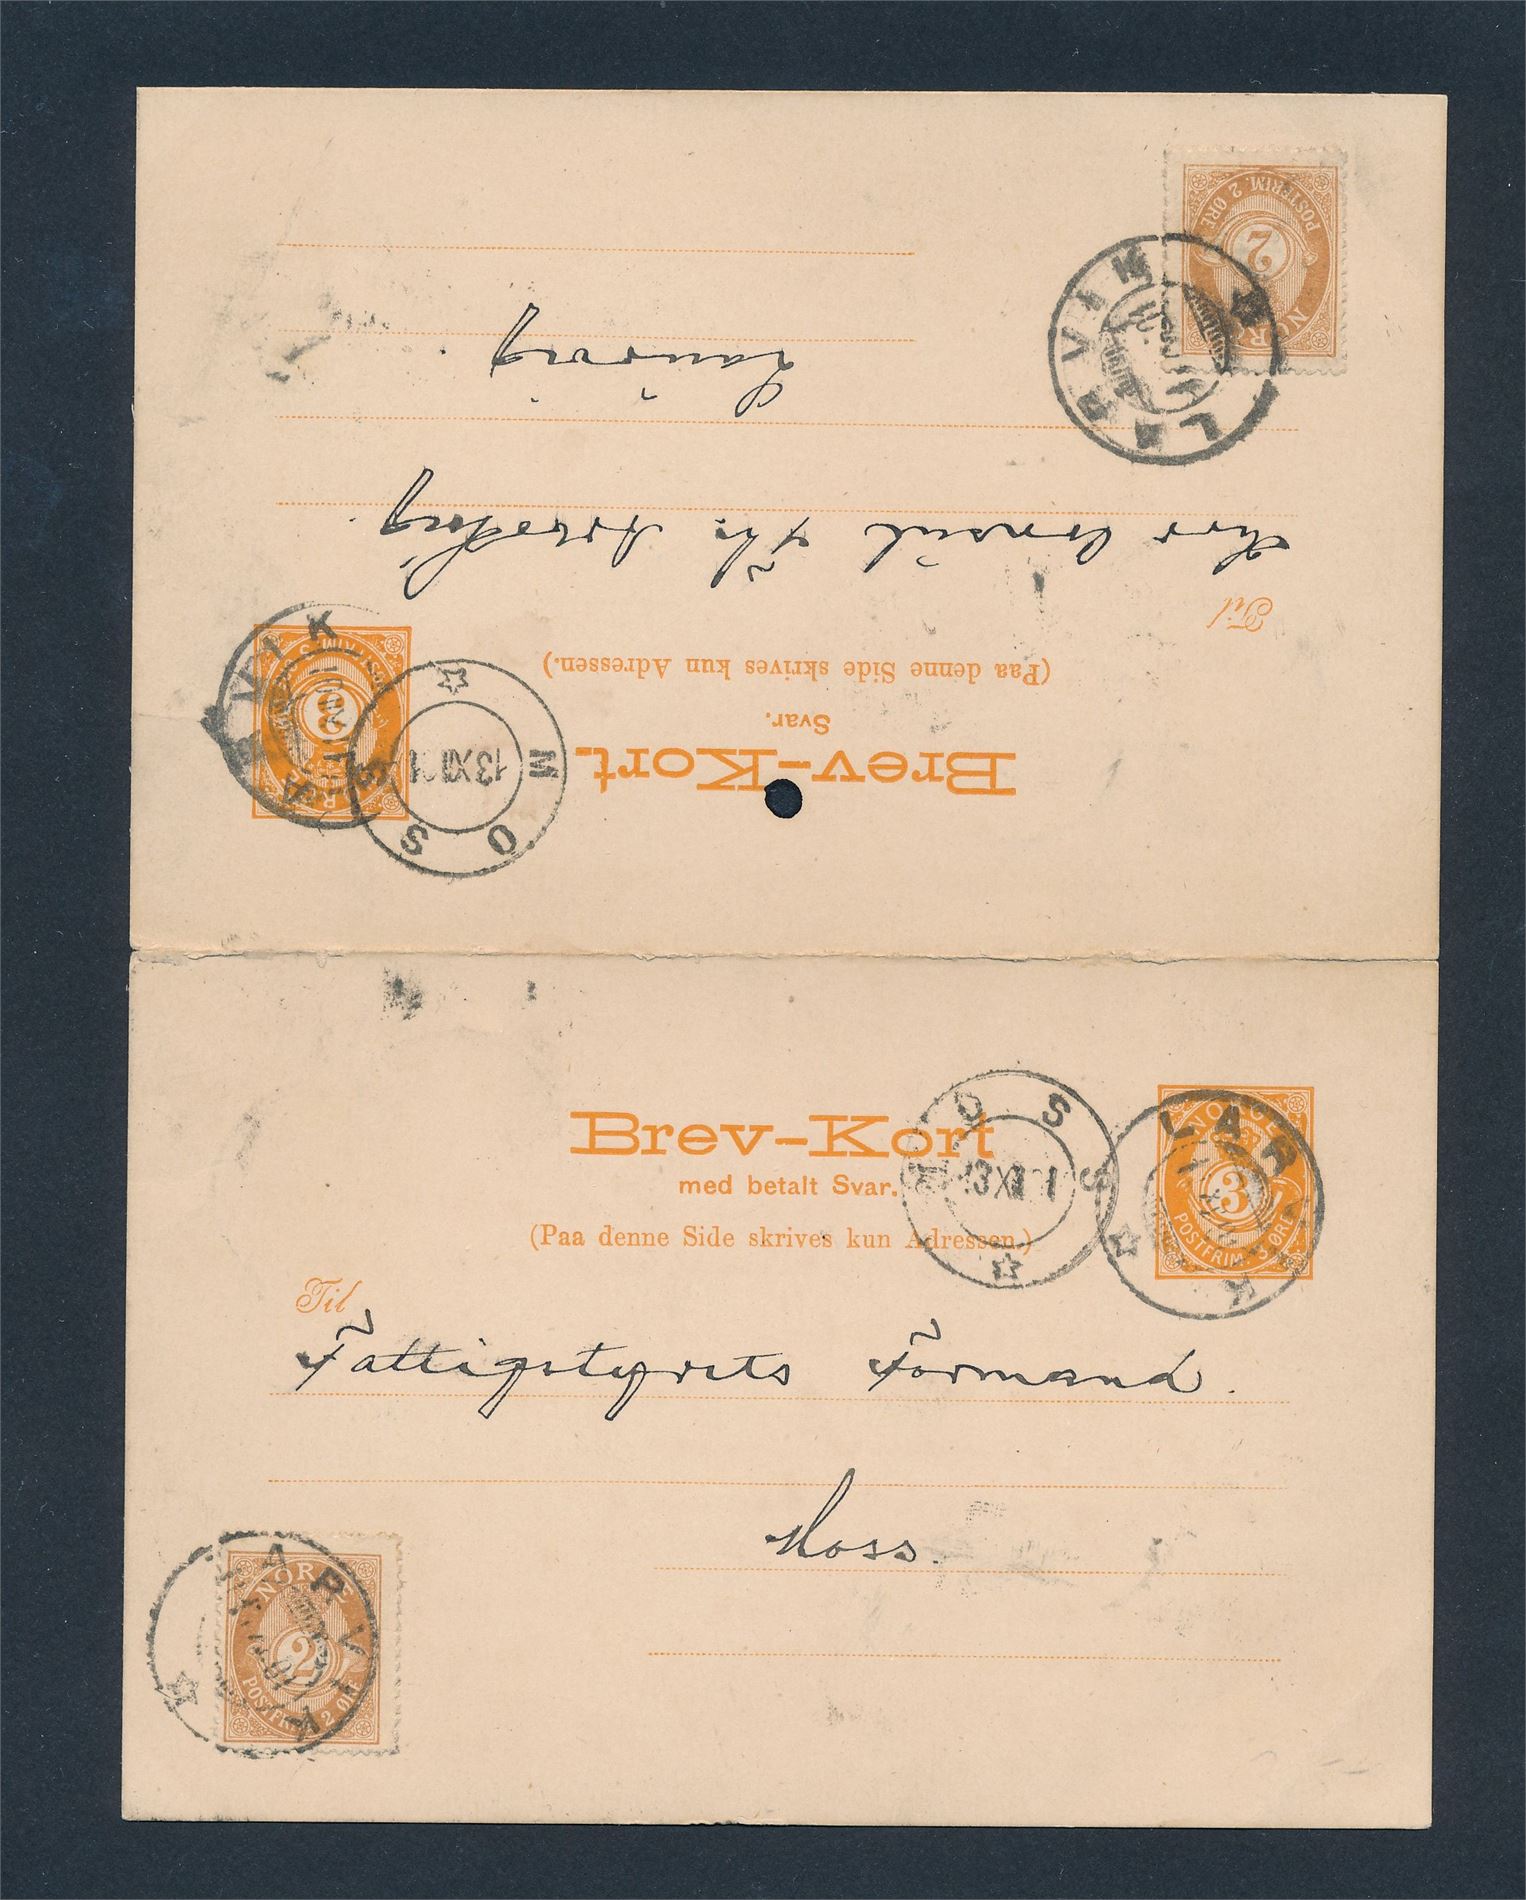 Brev-Kort.
Svar.
(Paa denne Side skrives kun Adressen.)
Til
Herr Consul Fr.
Laurvig
NORGE
3
POSTFRIM.
NORGE
2
POSTFRIM. 2 ØRE
LARVIK
LARVIK
MOSS
13 XI 01
Brev-Kort
med betalt Svar.
(Paa denne Side skrives kun Adressen.)
Til
Fattigstyrets Formand.
Moss.
NORGE
3
POSTFRIM. 3 ØRE
LARVIK
MOSS
13 XI 01
NORGE
2
POSTFRIM. 2 ØRE
LARVIK